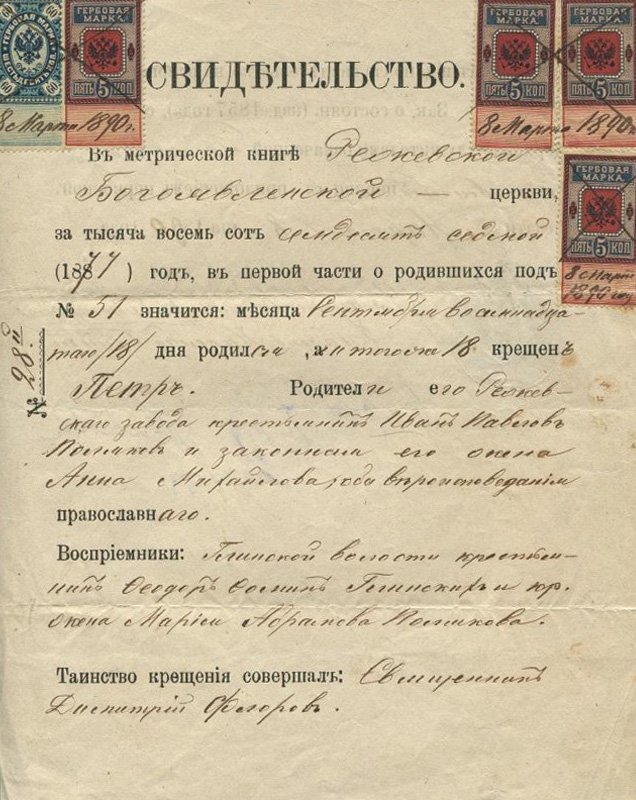 ГЕРБОВАЯ МАРКА
ШЕСТЬДЕСЯТЪ КОП.
60
60
ГЕРБОВАЯ
МАРКА.
ПЯТЬ 5 КОП
ГЕРБОВАЯ
МАРКА.
ПЯТЬ 5 КОП
ГЕРБОВАЯ
МАРКА.
ПЯТЬ 5 КОП
8 Марта 1890 г.
8 Марта 1890 г.
СВИДѢТЕЛЬСТВО.
ГЕРБОВАЯ
МАРКА.
ПЯТЬ 5 КОП
8 Марта
Въ метрической книгѣ Режевской
Богоявленской — церкви,
за тысяча восемь сотъ семдесятъ седмой
(1877) годъ, въ первой части о родившихся подъ
№ 51 значится: мѣсяца Сентября восемнадца-
таго /18/ дня родился, а итогоже 18 крещенъ
Петръ. Родители его Режев-
скаго завода крестьянинъ Иванъ Павловъ
Поляковъ и законная его жена
Анна Михайлова, оба вѣроисповеданія
православнаго.
Воспріемники: Глинской волости крестья-
нинъ Ѳеодоръ Ѳоминъ Глинскихъ и кр.
жена Марія Абрамова Полякова.
Таинство крещенія совершалъ: Священникъ
Димитрій Флоровъ.
№ 28й